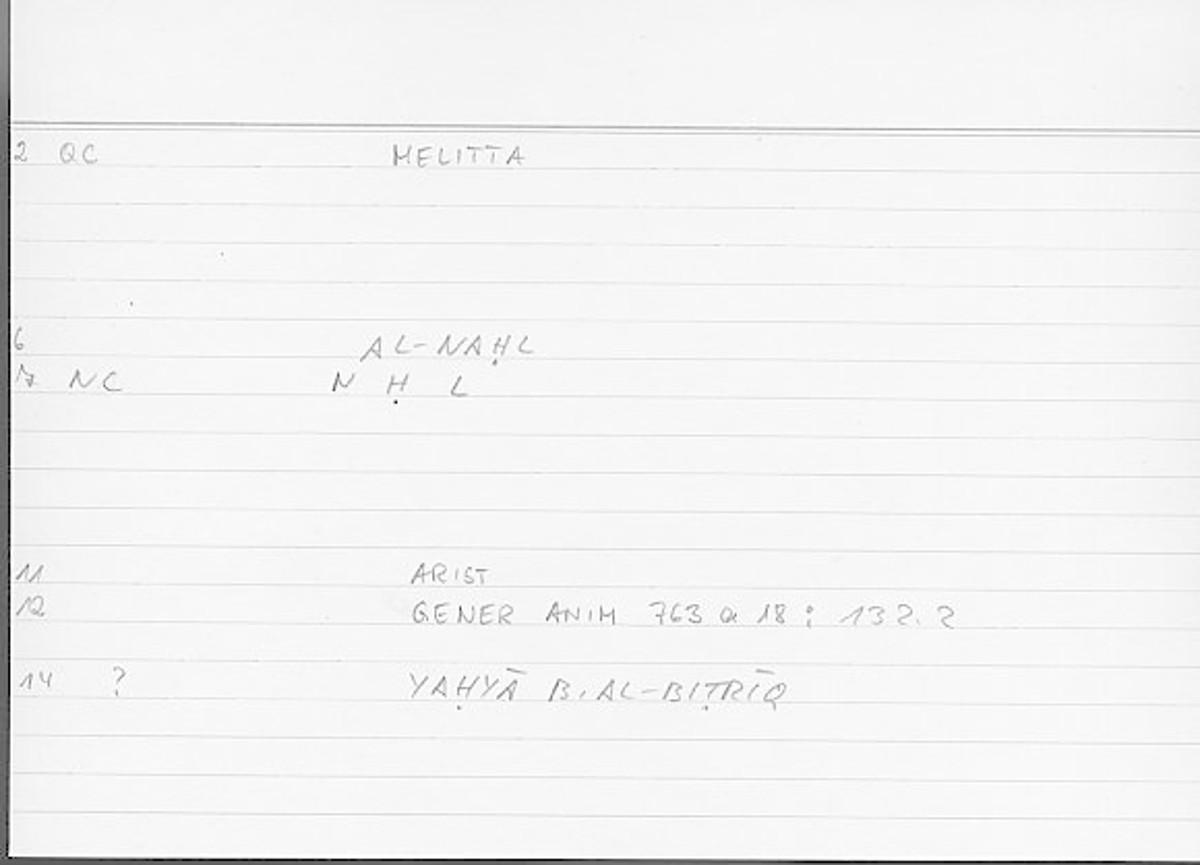 2 QC MELITTA
6 AL-NAḤL
7 NC N Ḥ L
11 ARIST
12 GENER ANIM 763 a 18 ; 132.2
14 ? YAḤYĀ B. AL-BIṬRĪQ